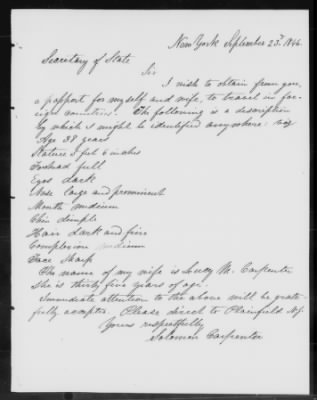 New York September 23rd 1846.
Secretary of State
Sir
I wish to obtain from you,
a passport for myself and wife, to travel in for-
eign countries. The following is a description
by which I might be identified anywhere: viz
Age 38 years
Stature 5 feet 6 inches
Forehead full
Eyes dark
Nose large and prominent
Mouth medium
Chin dimple
Hair dark and fine
Complexion medium
Face Sharp
The name of my wife is Lucy M. Carpenter
She is thirty five years of age.
Immediate attention to the above will be grate-
fully accepted. Please direct to Plainfield N.J.
Yours respectfully
Solomon Carpenter